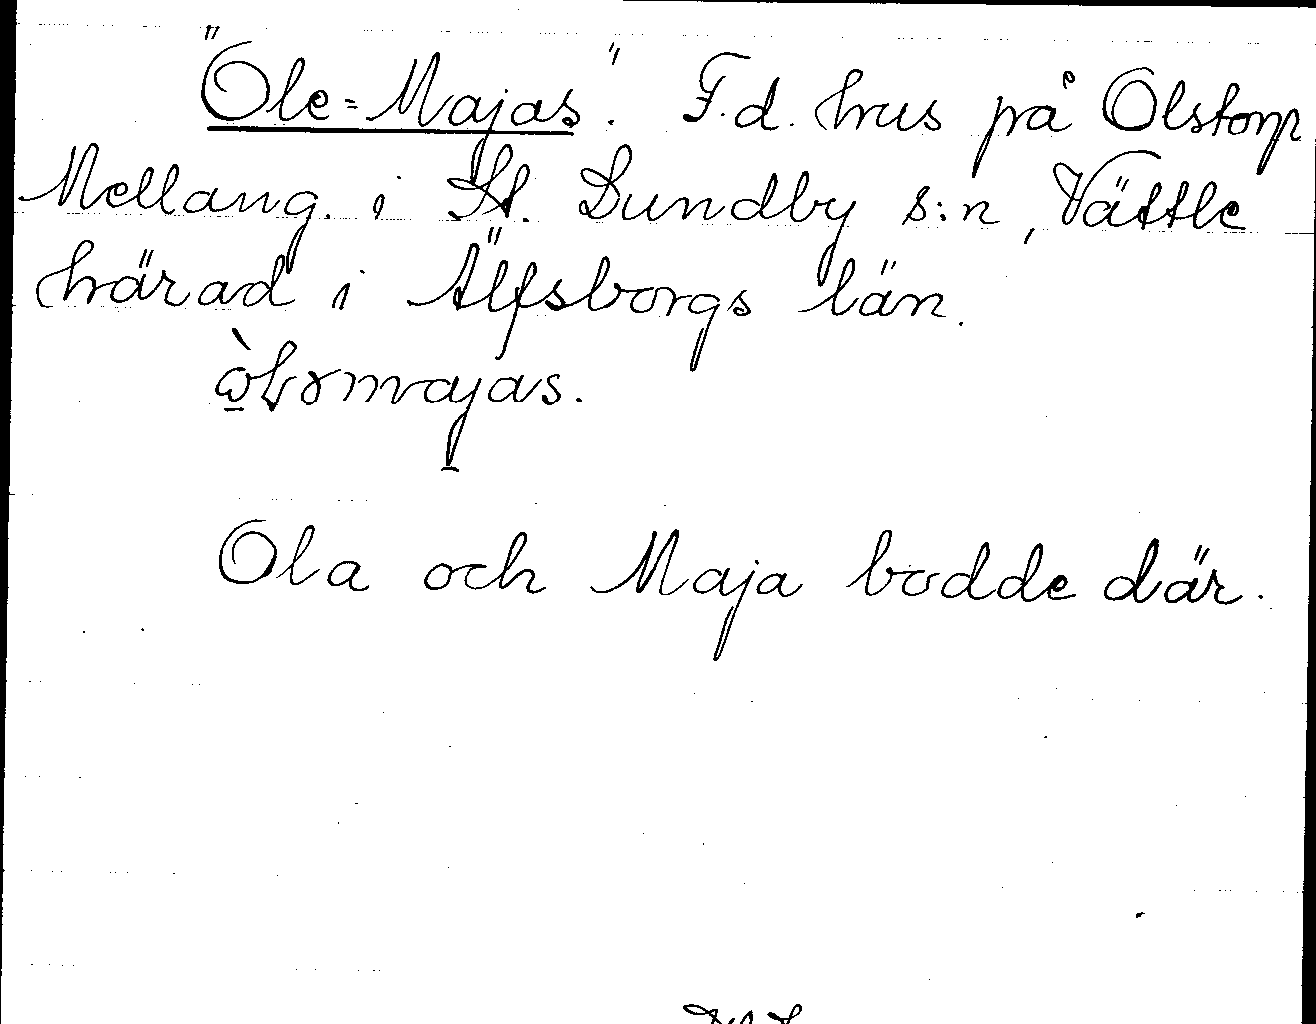 "Ole-Majas". F.d. hus på Olstorp
Mellang. i St. Lundby s:n, Vättle
härad i Älfsborgs län.
Ola och Maja bodde där.